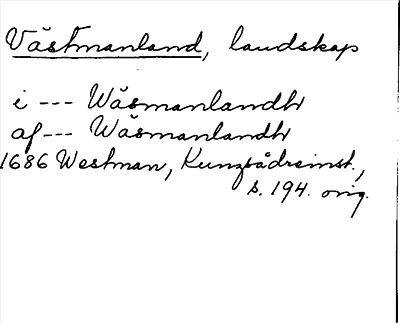 Västmanland, landskap
i --- Wäsmanlandh
af --- Wäsmanlandh
1686 Westman, Kungsådreinst.,
s. 194. orig.